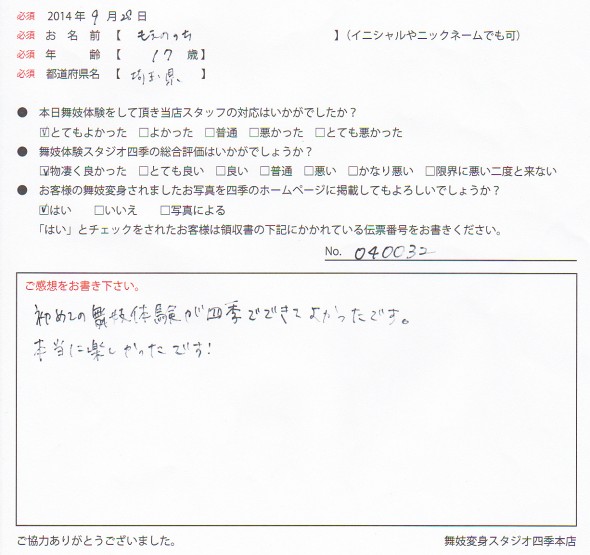 必須 2014 年 9 月 28 日
必須 お 名 前 【 】(イニシャルやニックネームでも可)
必須 年 齢 【 17 歳】
必須 都道府県名 【 埼玉県 】
● 本日舞妓体験をして頂き当店スタッフの対応はいかがでしたか?
☑とてもよかった □よかった □普通 □悪かった □とても悪かった
● 舞妓体験スタジオ四季の総合評価はいかがでしょうか?
☑物凄く良かった □とても良い □良い □普通 □悪い □かなり悪い □限界に悪い二度と来ない
● お客様の舞妓変身されましたお写真を四季のホームページに掲載してもよろしいでしょうか?
☑はい □いいえ □写真による
「はい」とチェックをされたお客様は領収書の下記にかかれている伝票番号をお書きください。
No. 040032
ご感想をお書き下さい。
初めての舞妓体験が四季でできてよかったです。
本当に楽しかったです!
ご協力ありがとうございました。 舞妓変身スタジオ四季本店